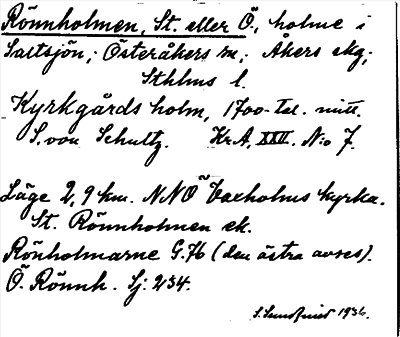 Rönnholmen, St. eller Ö., holme i
Saltsjön; Österåkers sn; Åkers skg;
Sthlms l.
Kyrkgårds holm, 1700-tal. mitt.
S. von Schultz. Kr.A, XXII. N:o 7.
Läge 2,9 km. NNO Vaxholms kyrka.
St. Rönnholmen ek.
Rönholmarne G.76 (den östra avses).
Ö. Rönnh. Sj: 234.
S. Sundquist 1936.